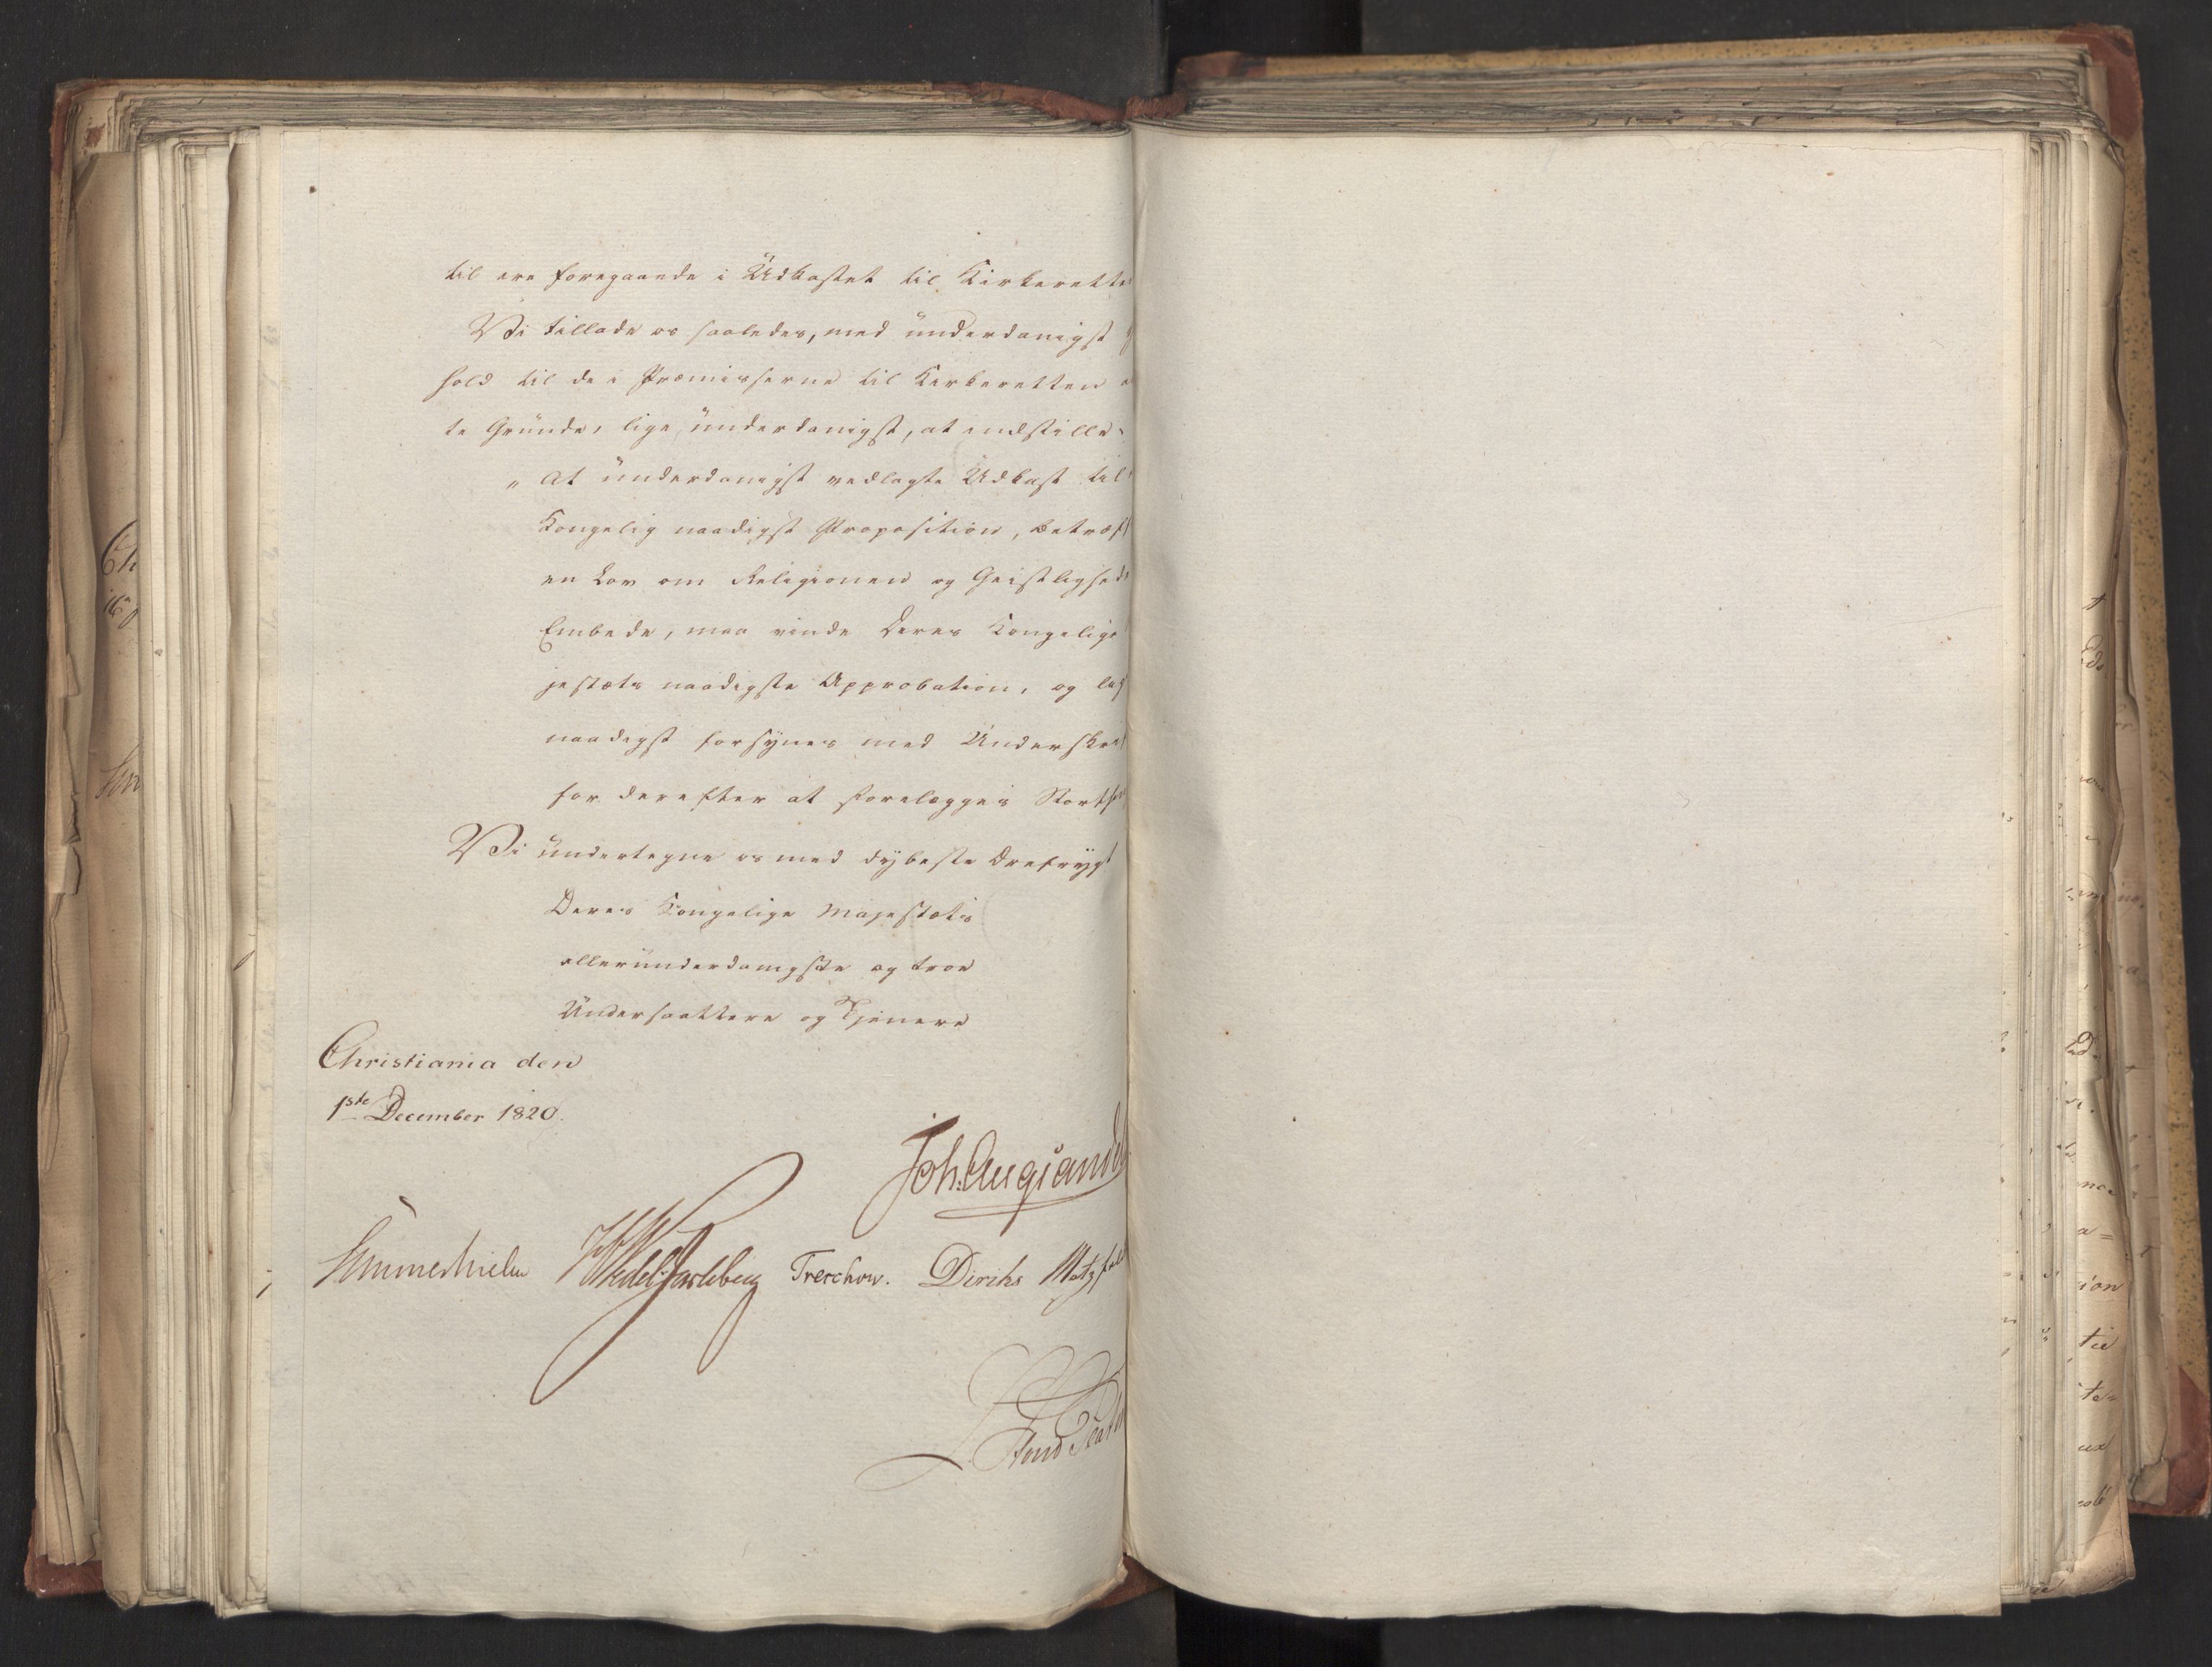 til ere foregaaende i Udkastet til Kirkerette
Vi tillade os saaledes, med underdanigst
hold til de i Præmisserne til Kirkeretten
te Grunde, lige underdanigst, at indstille:
„ At underdanigst vedlagte Udkast til
Kongelig naadigst Proposition, betref
en Lov om Religionen og Geistlighed
Embede, maa vinde Deres Kongelige
jestæts naadigste Approbation, og
naadigst forsynes med Underskri
for derefter at forelægges Storth
Vi undertegne os med dybeste Ærefrygt
Deres Kongelige Majestæts
allerunderdanigste og troe
Undersaattere og Tjenere
Christiania den
1ste December 1820.
Joh. Aug Sande
Sommerhielm Wedel Jarlsberg Treschow. Diriks Motzfeld